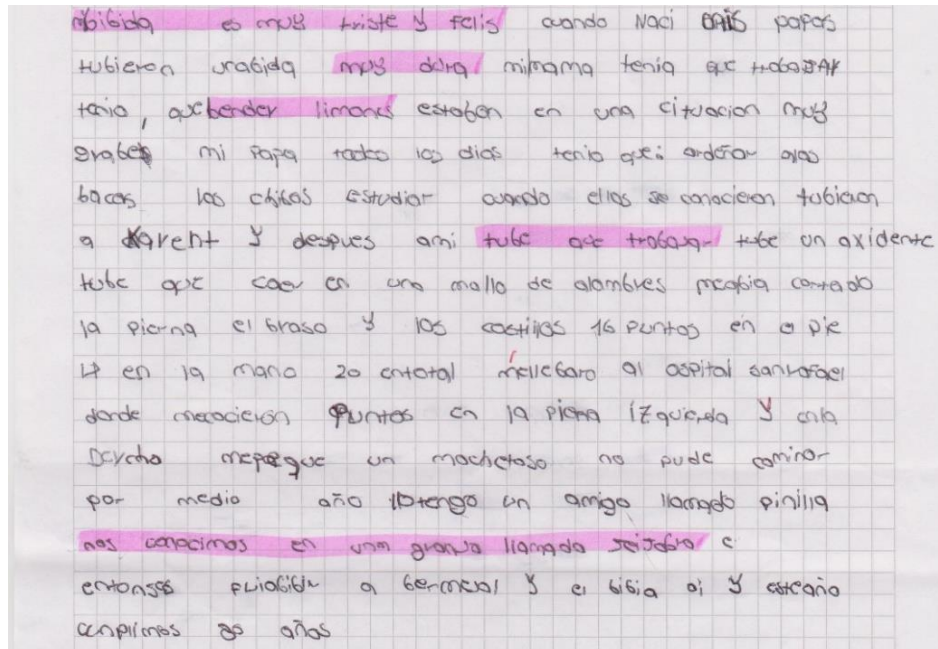 mibida es muy triste y felis cuando Naci mis papas
tubieron unabida muy dura mimama tenia que trabajar
tenia, que bender limones estaban en una cituacion muy
grabes mi papa todos los dias tenia que ordeñar alas
bacas los chibos estudiar cuando ellos se conocieron tubieron
a karent y despues ami tube que trabajar tube un axidente
tube que caer en una malla de alambres meabia cortado
la pierna el braso y las costillas 16 puntos en a pie
4 en la mano 20 entotal mellebaro al ospital sanrafael
donde mecocieron Puntos en la pierna izquierda y enla
Dercha mepegue un machetaso no pude caminar
por medio año 10tengo un amigo llamado pinilla
nos conocimos en una granja llamada
entonses a bermejal y el bibia ai y esteaño
cunplimos 20 años